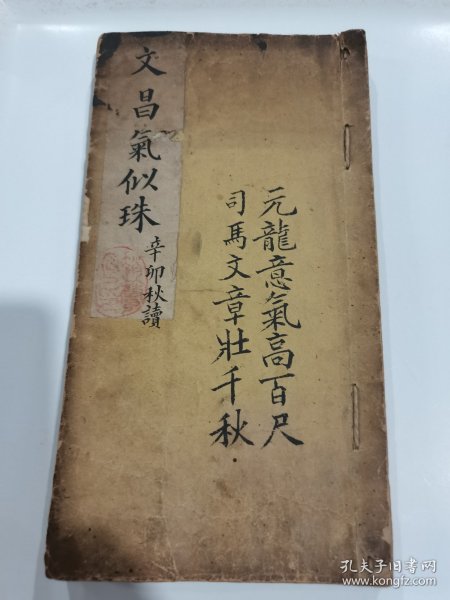 元龍意氣高百尺
司馬文章壯千秋
文昌氣似珠
辛卯秋讀
孔夫子旧书网
www.kongfz.com